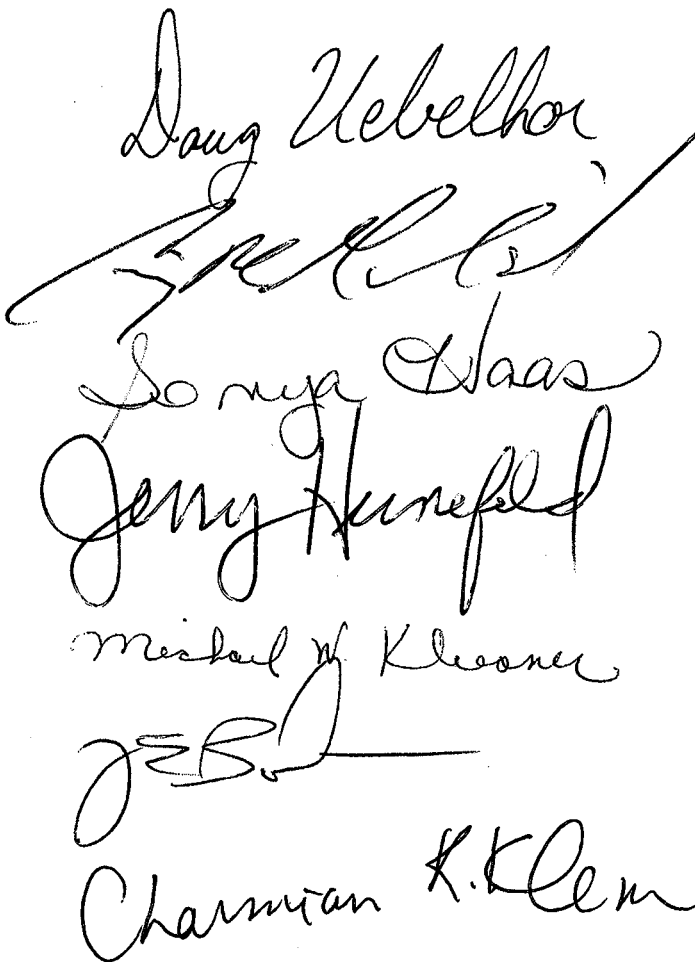 Doug Uebelhor
Sonya Haas
Jerry Hunefeld
Michael W. Kleaner
Charmian R. Klem